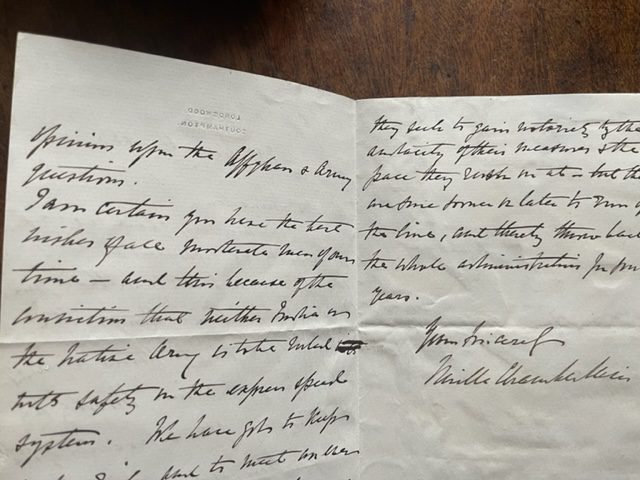 LORDSWOOD
SOUTHAMPTON
opinions upon the Affghan & Army
questions.
I am certain you have the best
wishes of all moderate men of our
time — and this because of the
conviction that neither India or
the Native Army is to be ruled
with safety on the express speed
system. We have got to keep
and to meet an
they seek to gain notoriety by the
audacity of their measures & the
pace they rush on at — but they
are sure sooner or later to run off
the line, and thereby throw back
the whole administration for
years.
Yours Sincerely
Neville Chamberlain